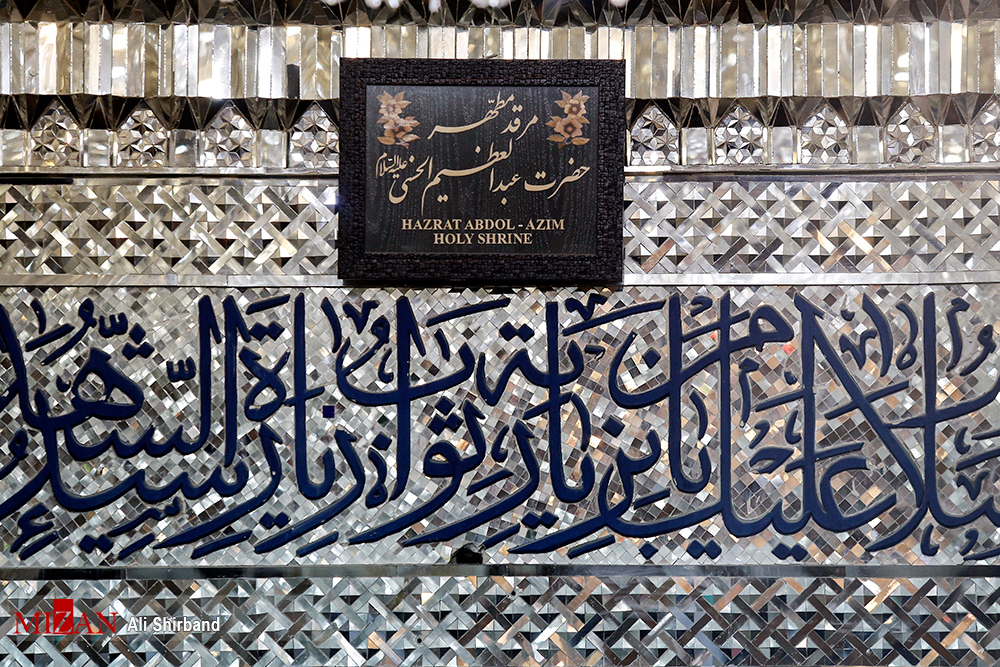 مرقد مطهّر
حضرت عبدالعظیم الحسنی علیه السلام
HAZRAT ABDOL - AZIM
HOLY SHRINE
سلام علیک یا من بزیارته ثواب زیارة سید الشهداء
MIZAN Ali Shirband